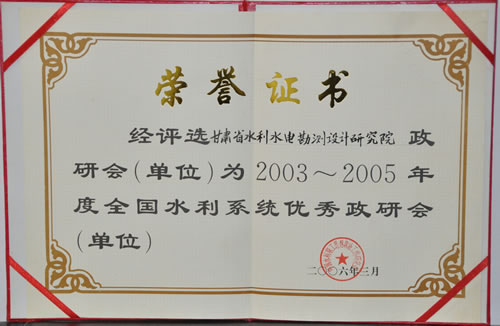 荣誉证书
经评选甘肃省水利水电勘测设计研究院 政
研会(单位)为2003～2005年
度全国水利系统优秀政研会
(单位)
二〇〇六年三月